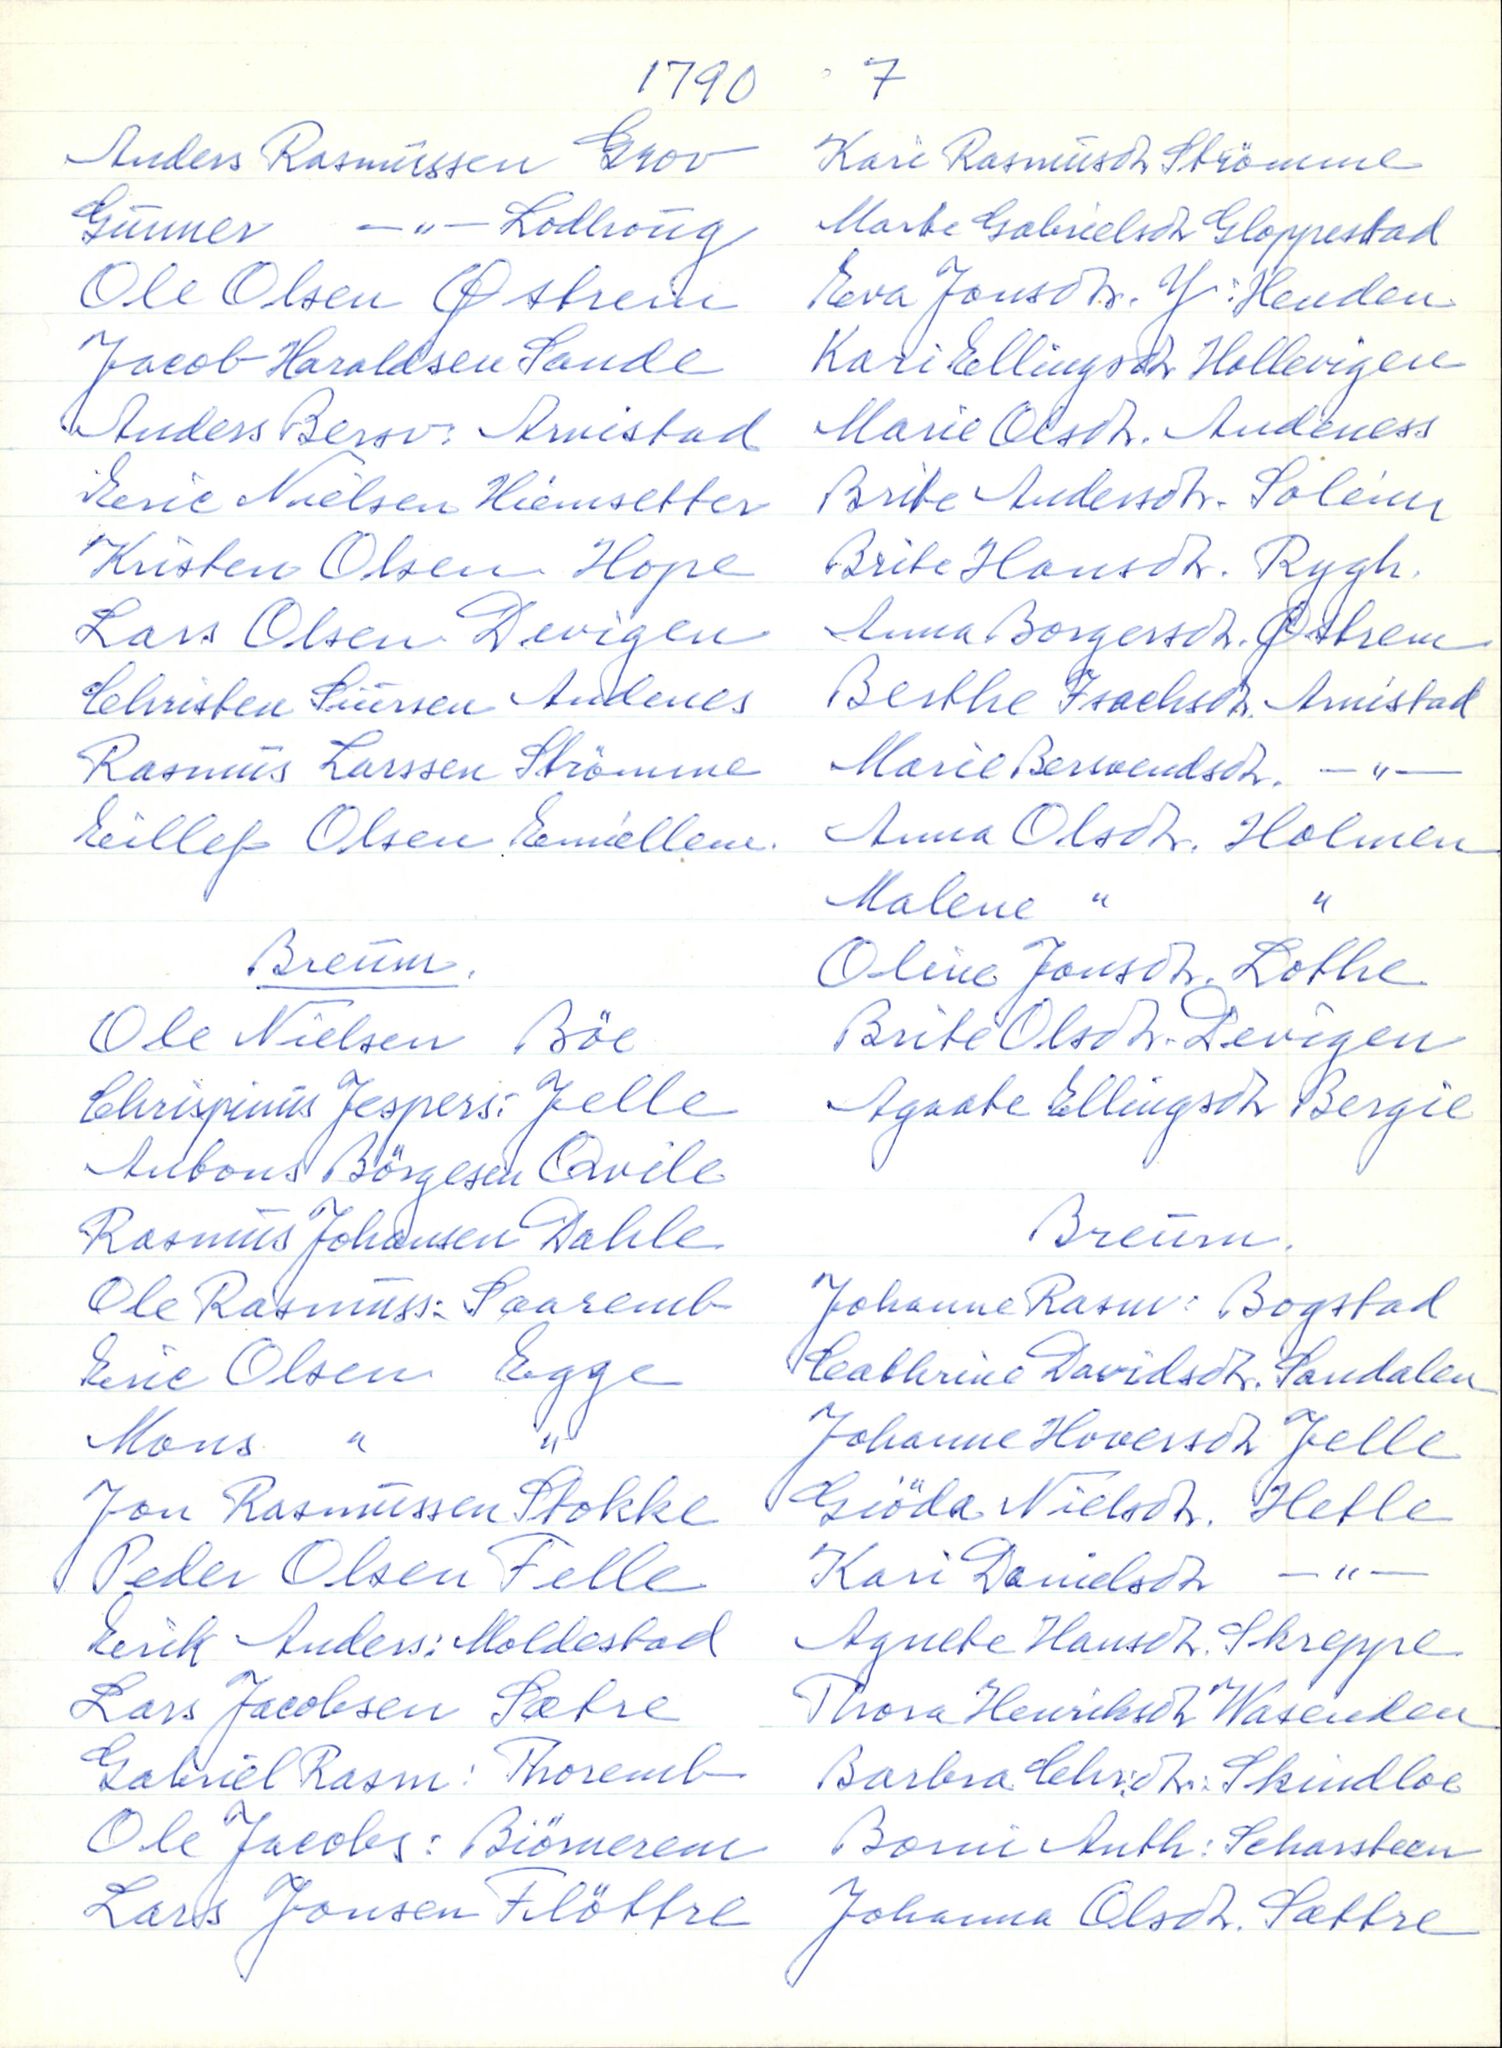 1790 7
Anders Rasmussen Grov
Gunner —"— Lodhoug
Ole Olsen Østrem
Jacob Haraldsen Sande
Anders Bersv: Arnistad
Eric Nielsen Hiemsetter
Kristen Olsen Hope
Lars Olsen Devigen
Christen Siursen Andenes
Rasmus Larssen Strömme
Eillef Olsen
Breum.
Ole Nielsen Böe
Chrispinus Jespers: Jelle
Antons Börgesen Qvile
Rasmus Johansen Dahle
Ole Rasmuss: Saaremb
Eric Olsen Egge
Mons " "
Jon Rasmussen Stokke
Peder Olsen Felle
Erik Anders: Moldestad
Lars Jacobsen Sætre
Gabriel Rasm: Thoremb
Ole Jacobs: Biörnerem
Lars Jonsen Flöttre
Kari Rasmusdtr Strömme
Marte Gabrielsdtr Gloppestad
Eva Jonsdtr. Y: Henden
Kari Ellingsdtr Hollevigen
Marie Olsdtr. Andeness
Brite Andersdtr. Soleim
Brite Hansdtr. Rygh.
Anna Borgersdtr. Østrem
Berthe Isachsdtr. Arnistad
Marie Bersvendsdtr. —"—
Anna Olsdtr. Holmen
Malene " "
Oline Jonsdtr. Lothe
Brite Olsdtr. Devigen
Agnate Ellingsdtr Bergie
Breum.
Johanne Rasm: Bogstad
Cathrine Davidsdtr. Sandalen
Johanne Hoversdtr Jelle
Giöda Nielsdtr. Hetle
Kari Danielsdtr —"—
Agnete Hansdtr. Skreppe
Thora Henriksdtr Wasenden
Barbra Chr:dtr: Skindloe
Borni Anth: Scharsteen
Johanna Olsdtr. Sættre